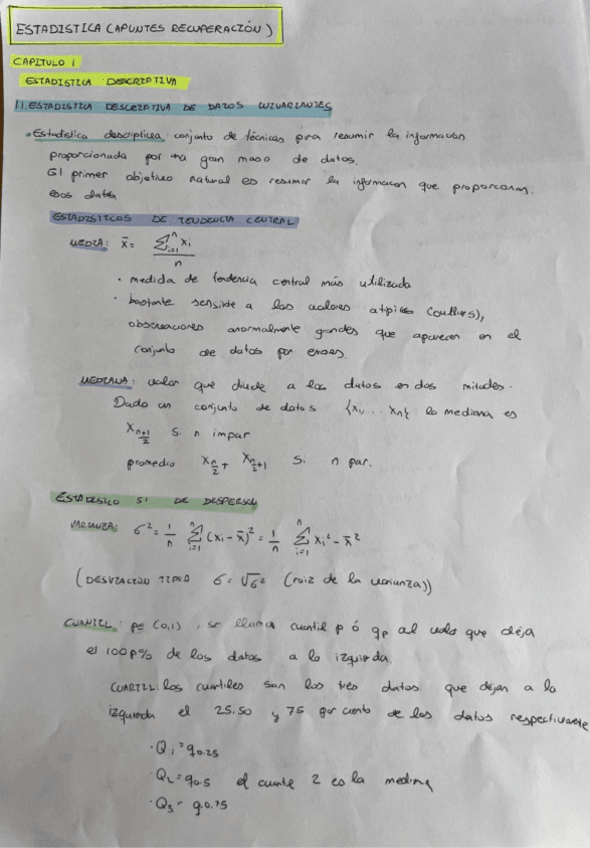 ESTADISTICA (APUNTES RECUPERACIÓN)
CAPITULO 1
ESTADISTICA DESCRIPTIVA
1.1. ESTADISTICA DESCRIPTIVA DE DATOS UNIVARIANTES
• Estadistica descriptiva: conjunto de técnicas para resumir la informacion
proporcionada por una gran masa de datos.
El primer objetivo natural es resumir la informacion que proporcionan.
esos datos.
ESTADISTICOS DE TENDENCIA CENTRAL
MEDIA: x̄ = ∑ⁿᵢ₌₁ xᵢ / n
• medida de tendencia central más utilizada
• bastante sensible a los valores atipicos (outliers),
observaciones anormalmente grandes que aparecen en el
conjunto de datos por errores.
MEDIANA: valor que divide a los datos en dos mitades.
Dado un conjunto de datos {x₁, ... xₙ} la mediana es
X_(n+1)/2 Si n impar
promedio X_n/2 + X_n/2+1 Si n par.
ESTADISTICO S1 DE DISPERSION
VARIANZA: σ² = 1/n ∑ⁿᵢ₌₁ (xᵢ - x̄)² = 1/n ∑ⁿᵢ₌₁ xᵢ² - x̄²
(DESVIACION TIPICA σ = √σ² (raiz de la varianza))
CUANTIL: p∈ (0,1), se llama cuantil p ó qp al valor que deja
el 100p% de los datos a la izquierda.
CUARTIL: los cuartiles son los tres datos que dejan a la
izquierda el 25.50 y 75 por ciento de los datos respectivamente
• Q₁ = q0.25
• Q₂ = q0.5 el cuartil 2 es la mediana
• Q₃ = q0.75